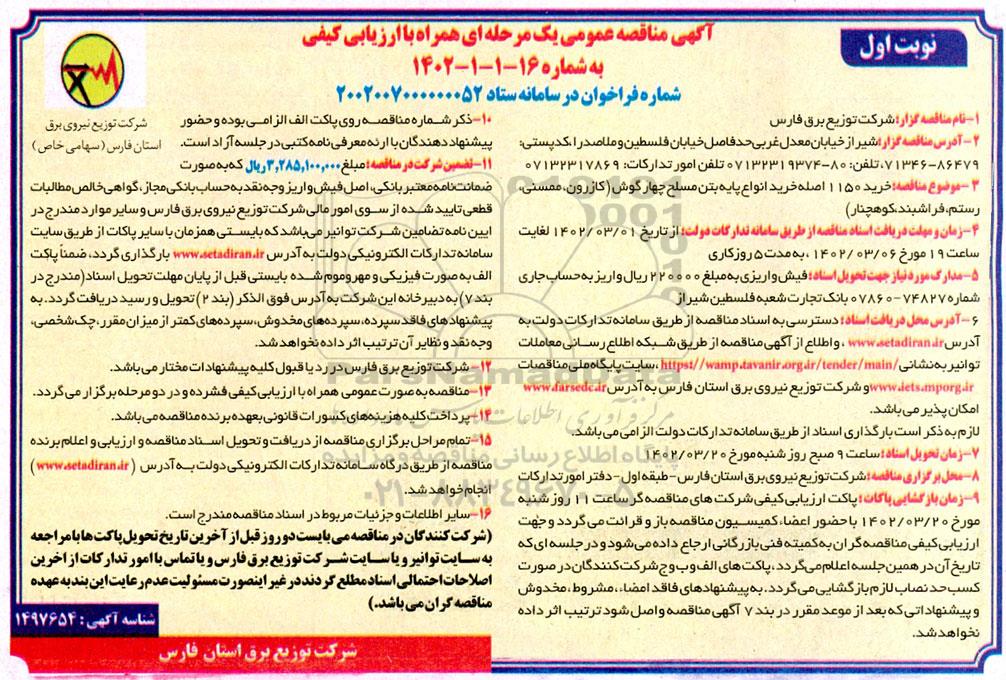 نوبت اول
آگهی مناقصه عمومی یک مرحله ای همراه با ارزیابی کیفی
به شماره ۱۶-۱-۱-۱۴۰۲
شماره فراخوان در سامانه ستاد ۲۰۰۲۰۰۷۰۰۰۰۰۰۰۵۲
شرکت توزیع نیروی برق
استان فارس (سهامی خاص)
۱-نام مناقصه گزار: شرکت توزیع برق فارس
۲-آدرس مناقصه گزار: شیراز خیابان معدل غربی حدفاصل خیابان فلسطین و ملاصدرا، کدپستی:
۷۱۳۴۶-۸۶۴۷۹، تلفن: ۸۰-۰۷۱۳۲۳۱۹۳۷۴ تلفن امور تدارکات: ۰۷۱۳۲۳۱۷۸۶۹
۳-موضوع مناقصه: خرید ۱۱۵۰ اصله خرید انواع پایه بتن مسلح چهار گوش (کازرون، ممسنی،
رستم، فراشبند، کوهچنار)
۴-زمان و مهلت دریافت اسناد مناقصه از طریق سامانه تدارکات دولت: از تاریخ ۱۴۰۲/۰۳/۰۱ لغایت
ساعت ۱۹ مورخ ۱۴۰۲/۰۳/۰۶، به مدت ۵ روز کاری
۵-مدارک مورد نیاز جهت تحویل اسناد: فیش واریزی به مبلغ ۲۲۰۰۰۰ ریال واریز به حساب جاری
شماره ۷۴۸۲۷-۰۷۸۶۰ بانک تجارت شعبه فلسطین شیراز
۶-آدرس محل دریافت اسناد: دسترسی به اسناد مناقصه از طریق سامانه تدارکات دولت به
آدرس www.setadiran.ir، و اطلاع از آگهی مناقصه از طریق شبکه اطلاع رسانی معاملات
توانیر به نشانی https://wamp.tavanir.org.ir/tender/main/، سایت پایگاه ملی مناقصات
www.iets.mporg.ir و شرکت توزیع نیروی برق استان فارس به آدرس www.farsedc.ir
امکان پذیر می باشد.
لازم به ذکر است بارگذاری اسناد از طریق سامانه تدارکات دولت الزامی می باشد.
۷-زمان تحویل اسناد: ساعت ۹ صبح روز شنبه مورخ ۱۴۰۲/۰۳/۲۰
۸-محل برگزاری مناقصه: شرکت توزیع نیروی برق استان فارس-طبقه اول-دفتر امور تدارکات
۹-زمان بازگشایی پاکات: پاکت ارزیابی کیفی شرکت های مناقصه گر ساعت ۱۱ روز شنبه
مورخ ۱۴۰۲/۰۳/۲۰ با حضور اعضاء کمیسیون مناقصه باز و قرائت می گردد و جهت
ارزیابی کیفی مناقصه گران به کمیته فنی بازرگانی ارجاع داده می شود و در جلسه ای که
تاریخ آن در همین جلسه اعلام می گردد، پاکت های الف و ب و ج شرکت کنندگان در صورت
کسب حد نصاب لازم بازگشایی می گردد. به پیشنهادهای فاقد امضاء، مشروط، مخدوش
و پیشنهاداتی که بعد از موعد مقرر در بند ۷ آگهی مناقصه واصل شود ترتیب اثر داده
نخواهد شد.
۱۰-ذکر شماره مناقصه روی پاکت الف الزامی بوده و حضور
پیشنهاد دهندگان با ارئه معرفی نامه کتبی در جلسه آزاد است.
۱۱-تضمین شرکت در مناقصه: مبلغ ۳,۲۸۵,۱۰۰,۰۰۰ ریال که به صورت
ضمانت نامه معتبر بانکی، اصل فیش واریز وجه نقد به حساب بانکی مجاز، گواهی خالص مطالبات
قطعی تایید شده از سوی امور مالی شرکت توزیع نیروی برق فارس و سایر موارد مندرج در
آیین نامه تضامین شرکت توانیر می باشد که بایستی همزمان با سایر پاکات از طریق سایت
سامانه تدارکات الکترونیکی دولت به آدرس www.setadiran.ir بارگذاری گردد، ضمناً پاکت
الف به صورت فیزیکی و مهر و موم شده بایستی قبل از پایان مهلت تحویل اسناد (مندرج در
بند ۷) به دبیرخانه این شرکت به آدرس فوق الذکر (بند ۲) تحویل و رسید دریافت گردد. به
پیشنهادهای فاقد سپرده، سپرده های مخدوش، سپرده های کمتر از میزان مقرر، چک شخصی،
وجه نقد و نظایر آن ترتیب اثر داده نخواهد شد.
۱۲- شرکت توزیع برق فارس در رد یا قبول کلیه پیشنهادات مختار می باشد.
۱۳-مناقصه به صورت عمومی همراه با ارزیابی کیفی فشرده و در دو مرحله برگزار می گردد.
۱۴-پرداخت کلیه هزینه های کسورات قانونی بعهده برنده مناقصه می باشد.
۱۵-تمام مراحل برگزاری مناقصه از دریافت و تحویل اسناد مناقصه و ارزیابی و اعلام برنده
مناقصه از طریق درگاه سامانه تدارکات الکترونیکی دولت به آدرس (www.setadiran.ir)
انجام خواهد شد.
۱۶-سایر اطلاعات و جزئیات مربوط در اسناد مناقصه مندرج است.
(شرکت کنندگان در مناقصه می بایست دو روز قبل از آخرین تاریخ تحویل پاکت ها با مراجعه
به سایت توانیر و یا سایت شرکت توزیع برق فارس و یا تماس با امور تدارکات از اخرین
اصلاحات احتمالی اسناد مطلع گردند در غیر اینصورت مسئولیت عدم رعایت این بند به عهده
مناقصه گران می باشد.)
شناسه آگهی: ۱۴۹۷۶۵۴
شرکت توزیع برق استان فارس
ParsNamadData
پایگاه اطلاع رسانی مناقصه و مزایده
۰۲۱-۸۸۳۴۹۶۷۰-۵